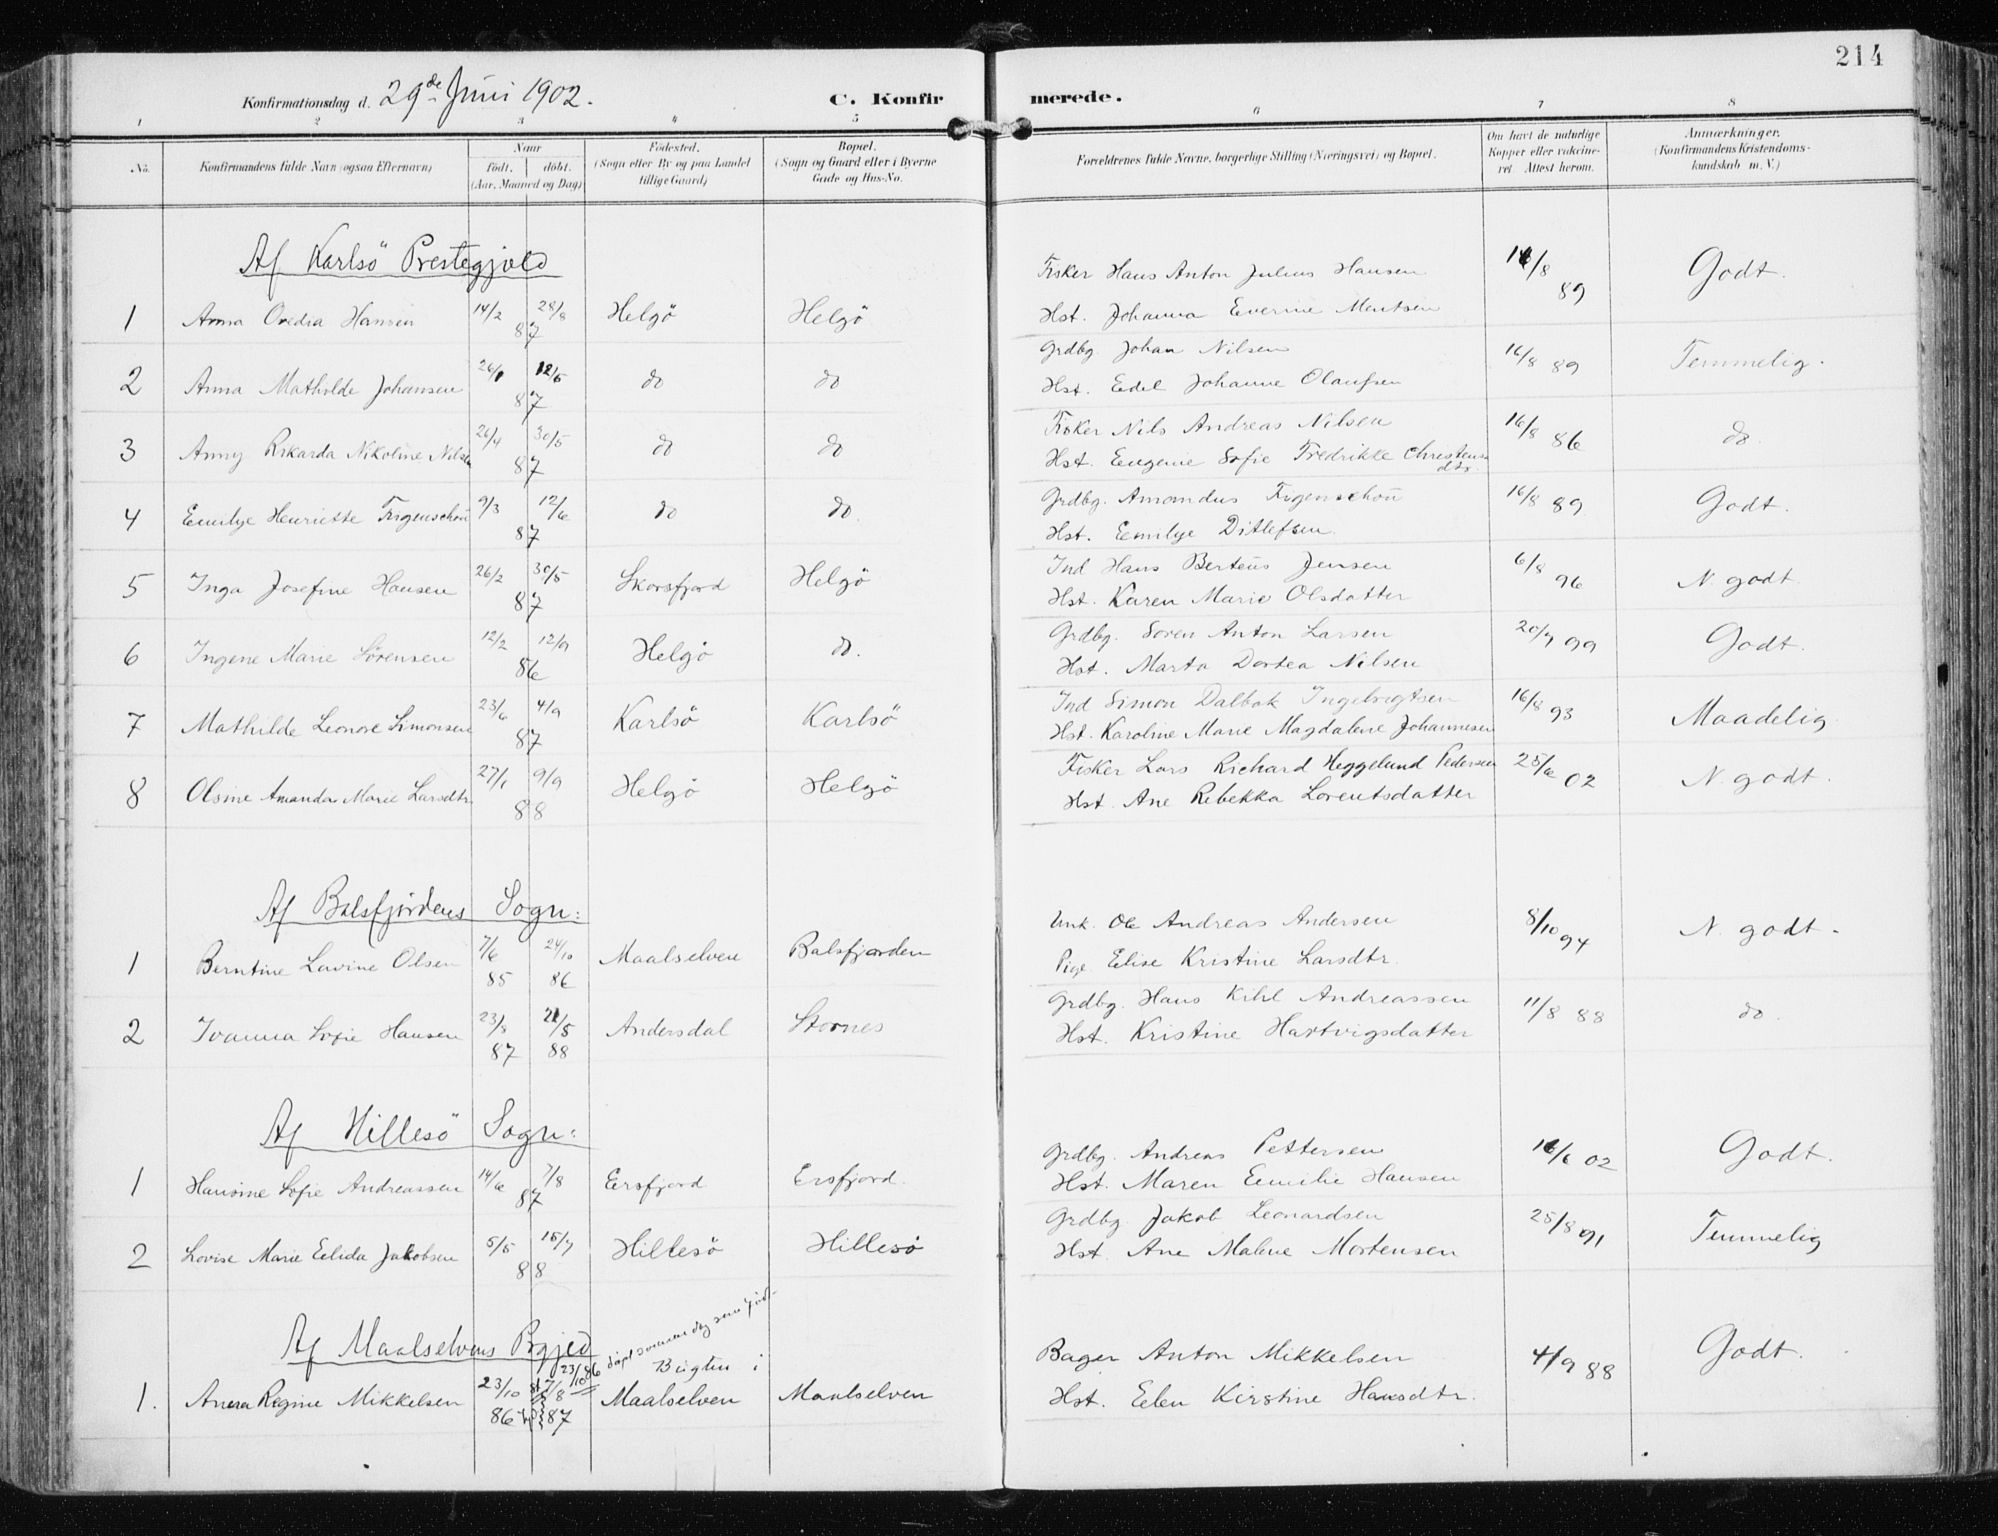 214
Konfirmationsdag d. 29de Juni 1902.
C. Konfirmerede.
1 2 3 4 5 6 7 8
No.
Konfirmandens fulde Navn (ogsaa Efternavn)
Naar
født. døbt.
(Aar, Maaned og Dag)
Fødested.
(Sogn eller By og paa Landet
tillige Gaard)
Bopæl.
(Sogn og Gaard eller i Byerne
Gade og Hus-No.
Forældrenes fulde Navne, borgerlige Stilling (Næringsvei) og Bopæl.
Om havt de naturlige
Kopper eller vakcine-
ret. Attest herom.
Anmærkninger.
(Konfirmandens Kristendoms-
kundskab m. V.)
Af Karlsö Prestegjæld
1 Anna Ovedia Hansen 14/2 28/8 87 Helgö Helgö Fisker Hans Anton Julius Hansen 14/8 89 Godt.
Hst. Johanna Everine Mentsen
2 Anna Mathilde Johansen 26/1 12/6 87 do do Grdbg. Johan Nilsen 16/8 89 Temmelig.
Hst. Edel Johanne Olaufsen
3 Anny Rikarda Nikoline Nilsen 26/4 30/5 87 do do Fisker Nils Andreas Nilsen 16/8 86 do.
Hst. Eugenie Sofie Fredrikke Christens
dtr.
4 Emilye Henriette Figenschou 9/3 12/6 87 do do. Grdbg. Amandus Figenschou 16/8 89 Godt.
Hst. Emilye Ditlefsen.
5 Inga Josefine Hansen 26/2 30/5 87 Skorsfjord Helgö Ind Hans Berteus Jensen 6/8 96 N. godt.
Hst. Karen Marie Olsdatter
6 Ingene Marie Sörensen 12/2 12/9 86 Helgö do. Grdbg. Soren Anton Larsen 20/7 99 Godt.
Hst. Marta Dortea Nilsen
7 Mathilde Leonore Simonsen 23/6 4/9 87 Karlsö Karlsö Ind Simon Dalbak Ingebrigtsen 16/8 93 Maadelig.
Hst. Karoline Marie Magdalene Johannesen
8 Olsine Amanda Marie Larsdtr. 27/1 9/9 88 Helgö Helgö Fisker Lars Richard Heggelund Pedersen 25/6 02 N. godt.
Hst. Ane Rebekka Lorentsdatter
Af Balsfjordens Sogn:
1 Berntine Lavine Olsen 7/6 85 24/10 86 Maalselven Balsfjorden Unk. Ole Andreas Andersen 8/10 94 N. godt.
Pige. Elise Kristine Larsdtr.
2 Ivanna Sofie Hansen 23/8 87 21/5 88 Andersdal Stornes Grdbg. Hans Kihl Andreassen 11/8 88 do.
Hst. Kristine Hartvigsdatter
Af Hillesö Sogn:
1 Hansine Sofie Andreassen 14/6 7/8 87 Ersfjord Ersfjord. Grdbg. Andreas Pettersen 16/6 02 Godt.
Hst. Maren Emilie Hansen
2 Lovise Marie Elida Jakobsen 5/5 15/7 88 Hillesö Hillesö Grdbg. Jakob Leonardsen 25/8 91 Temmelig
Hst. Ane Malene Mortensen
Af Maalselvens Pgjed
23/10 86 döpt samme dag som född.
1. Anna Regine Mikkelsen 23/10 86 7/8 87 Bugten i Maalselven Maalselven Bager Anton Mikkelsen 4/9 88 Godt.
Hst. Elen Kirstine Hansdtr.